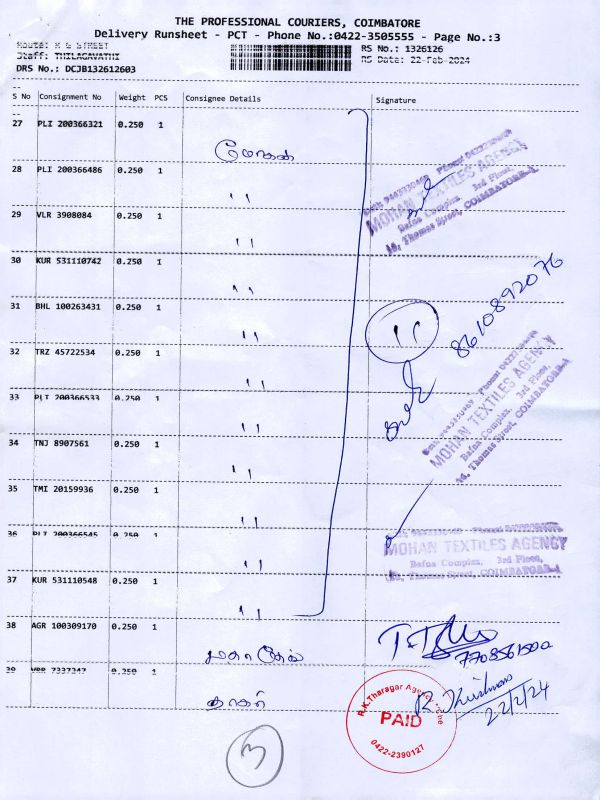 THE PROFESSIONAL COURIERS, COIMBATORE
Delivery Runsheet - PCT - Phone No.:0422-3505555 - Page No.:3
Route: K G STREET
Staff: THILAGAVATHI
RS No.: 1326126
RS Date: 22-Feb-2024
DRS No.: DCJB132612603
S No Consignment No Weight PCS Consignee Details Signature
27 PLI 200366321 0.250 1
மோகன்
28 PLI 200366486 0.250 1
''
MOHAN TEXTILES AGENCY
Bafna Complex, 3rd Floor,
Thomas Street, COIMBATORE-1
29 VLR 3908084 0.250 1
''
30 KUR 531110742 0.250 1
''
8610892076
31 BHL 100263431 0.250 1
''
''
32 TRZ 45722534 0.250 1
''
33 PLI 200366533 0.250 1
''
MOHAN TEXTILES AGENCY
Bafna Complex, 3rd Floor,
Thomas Street, COIMBATORE-1
34 TNJ 8907561 0.250 1
''
35 TMI 20159936 0.250 1
''
36 PLI 200366545 0.250 1
''
MOHAN TEXTILES AGENCY
Bafna Complex, 3rd Floor,
Thomas Street, COIMBATORE-1
37 KUR 531110548 0.250 1
''
38 AGR 100309170 0.250 1
39 7337347 0.250 1
R.K.Tharagar Agency
PAID
0422-2390127
22/2/24
3